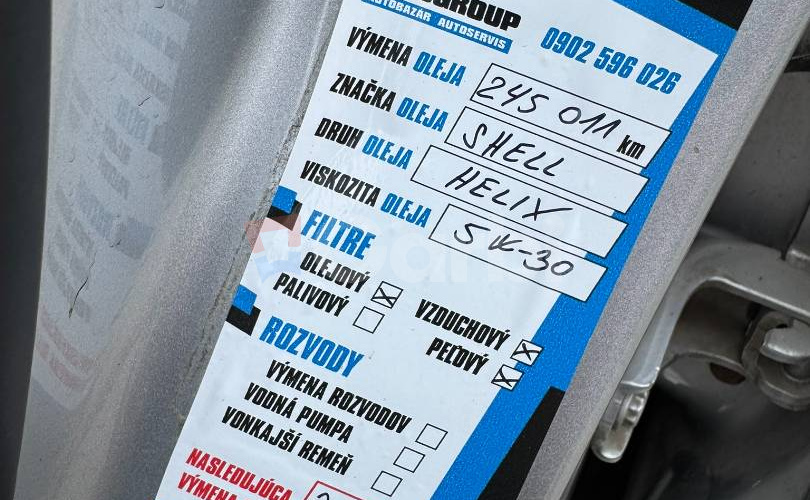 GROUP
AUTOBAZÁR AUTOSERVIS
0902 596 026
VÝMENA OLEJA 245 011 km
ZNAČKA OLEJA SHELL
DRUH OLEJA HELIX
VISKOZITA OLEJA 5W-30
FILTRE
OLEJOVÝ
PALIVOVÝ
VZDUCHOVÝ
PEĽOVÝ
ROZVODY
VÝMENA ROZVODOV
VODNÁ PUMPA
VONKAJŠÍ REMEŇ
NASLEDUJÚCA
VÝMENA